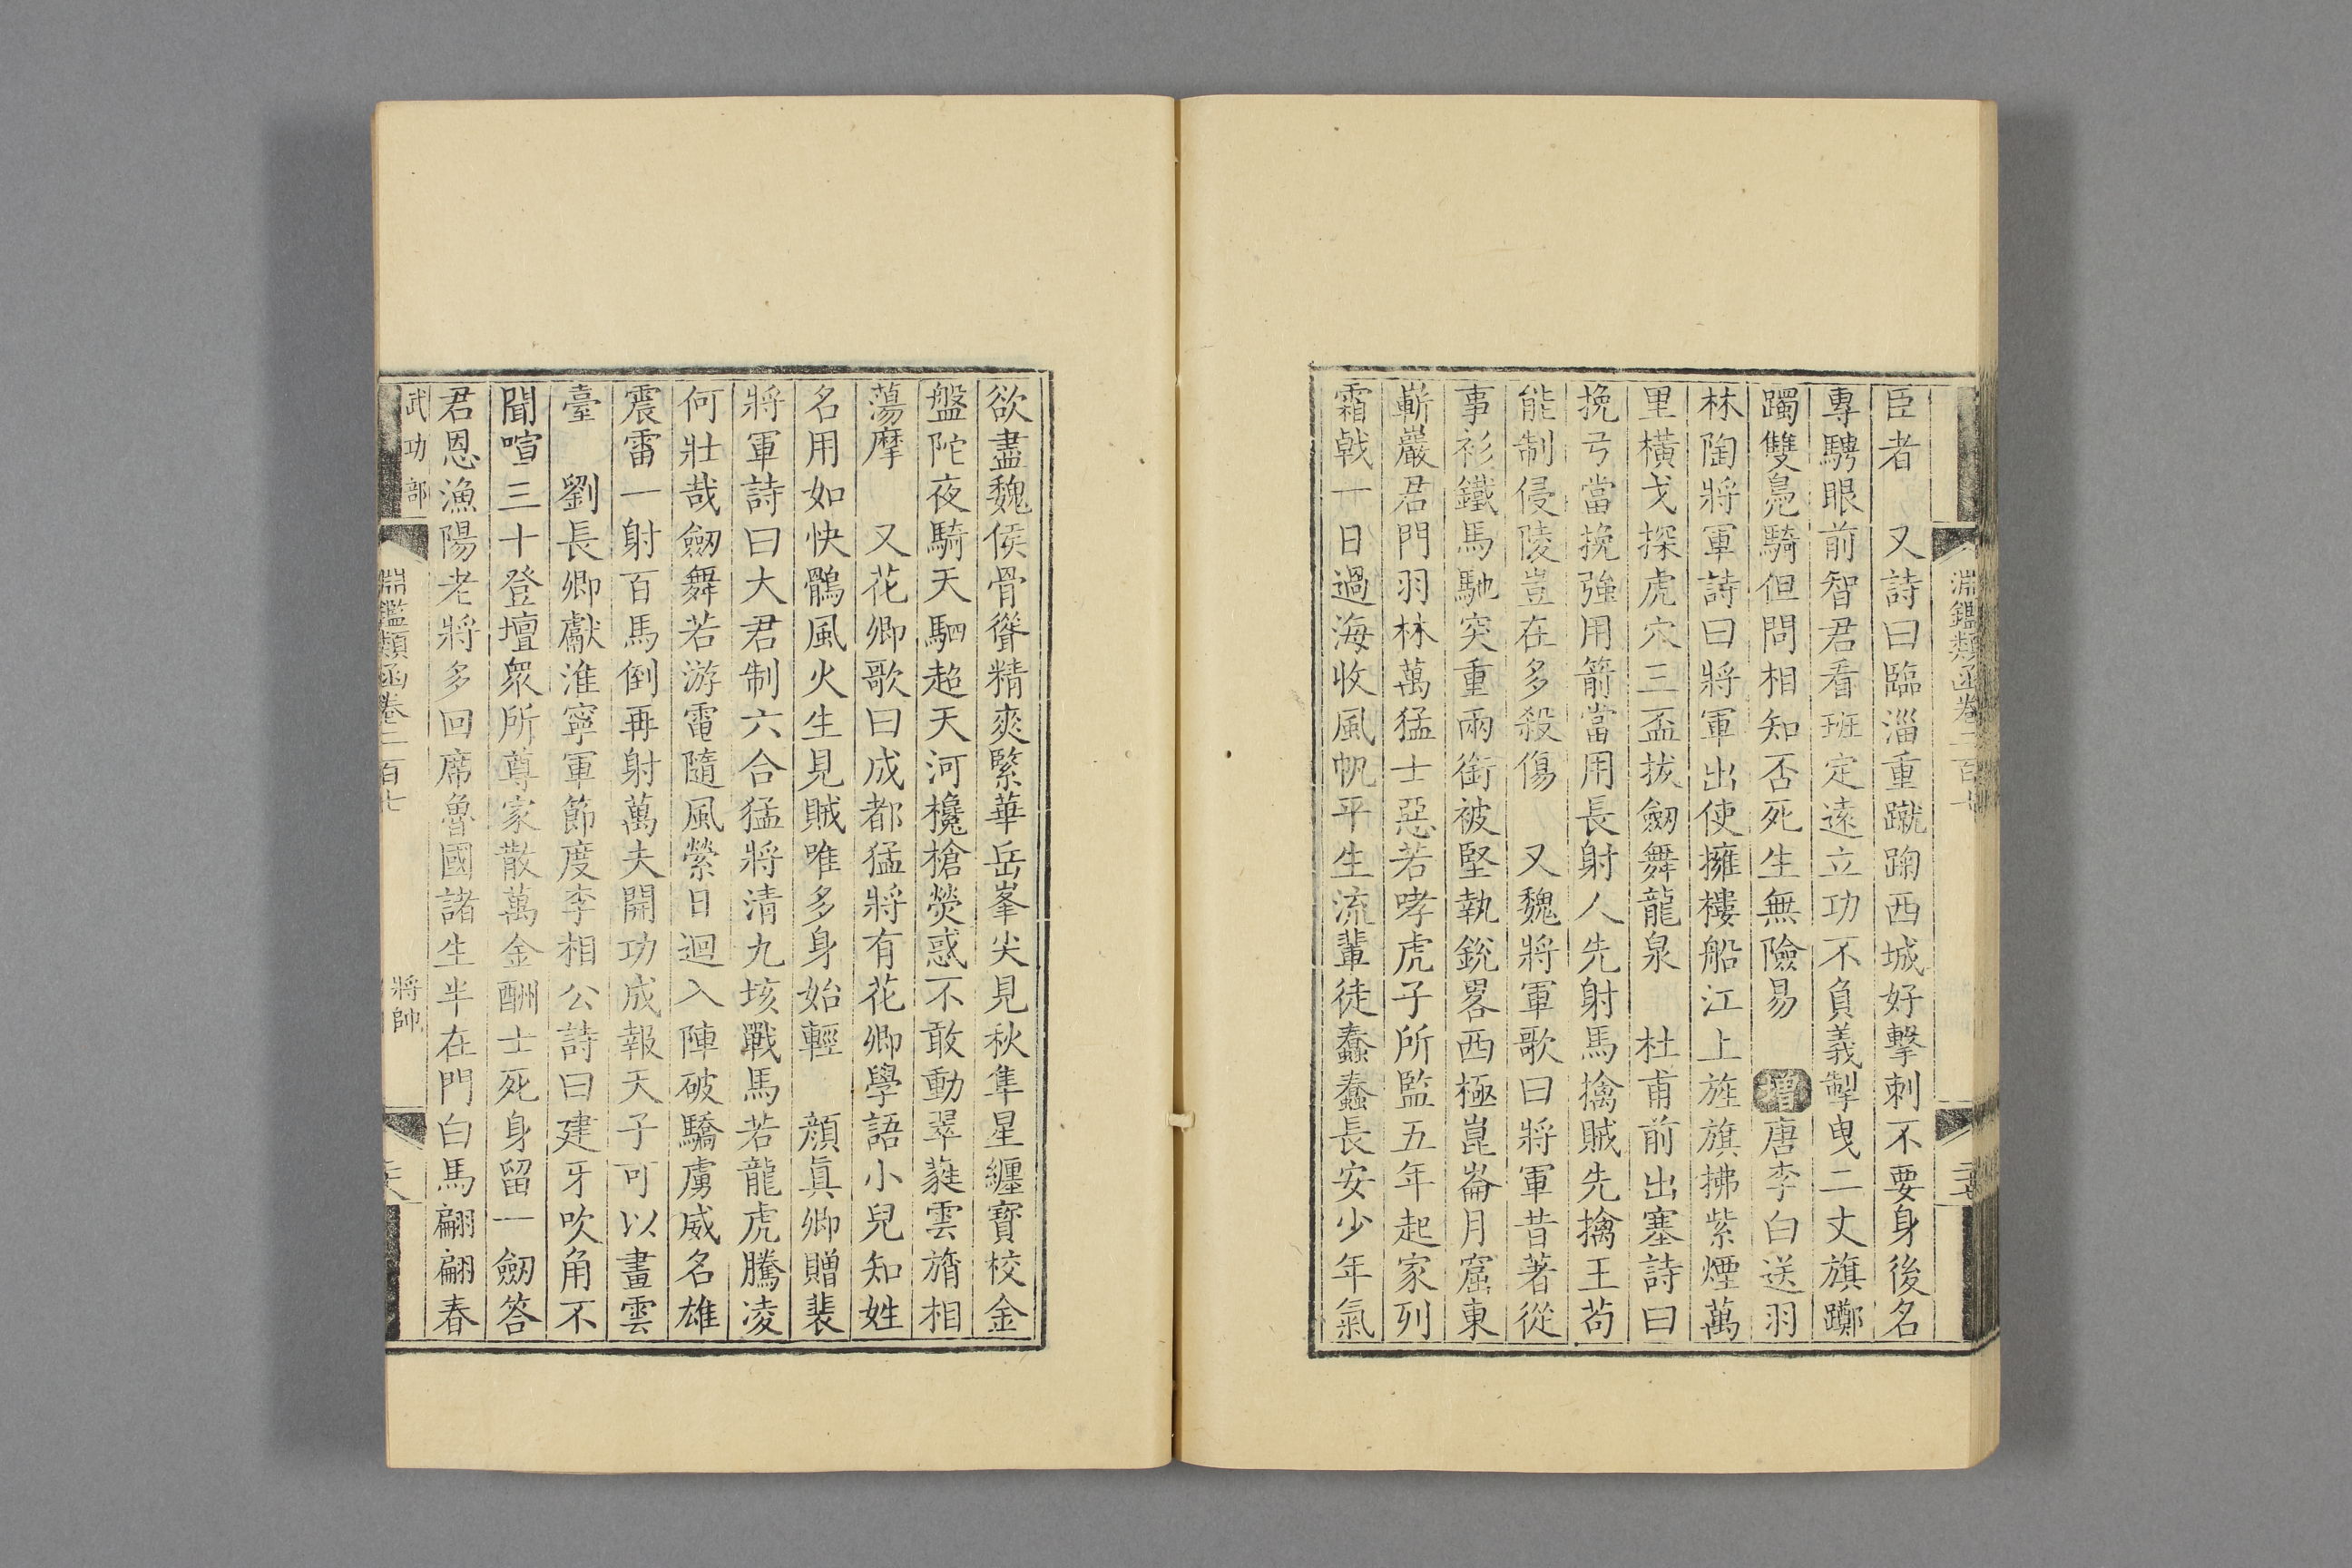 淵鑑類函卷二百七
臣者　又詩曰臨淄重蹴踘西城好擊刺不要身後名
專騁眼前智君看班定遠立功不負義掣曳二丈旗躑
躅雙鳧騎但問相知否死生無險易　增唐李白送羽
林陶將軍詩曰將軍出使擁樓船江上旌旗拂紫煙萬
里橫戈探虎穴三盃拔劒舞龍泉　杜甫前出塞詩曰
挽弓當挽強用箭當用長射人先射馬擒賊先擒王苟
能制侵陵豈在多殺傷　又魏將軍歌曰將軍昔著從
事衫鐵馬馳突重兩銜被堅執銳畧西極崑崙月窟東
嶄巖君門羽林萬猛士惡若哮虎子所監五年起家列
霜戟一日過海收風帆平生流輩徒蠢蠢長安少年氣
欲盡魏侯骨聳精爽緊華岳峯尖見秋隼星纏寶校金
盤陀夜騎天駟超天河欃槍熒惑不敢動翠蕤雲旓相
蕩摩　又花卿歌曰成都猛將有花卿學語小兒知姓
名用如快鶻風火生見賊唯多身始輕　顏眞卿贈裴
將軍詩曰大君制六合猛將清九垓戰馬若龍虎騰凌
何壯哉劒舞若游電隨風縈日迴入陣破驕虜威名雄
震雷一射百馬倒再射萬夫開功成報天子可以畫雲
臺　劉長卿獻淮寧軍節度李相公詩曰建牙吹角不
聞喧三十登壇衆所尊家散萬金酬士死身留一劒答
君恩漁陽老將多回席魯國諸生半在門白馬翩翩春
武功部
淵鑑類函卷二百七
將帥